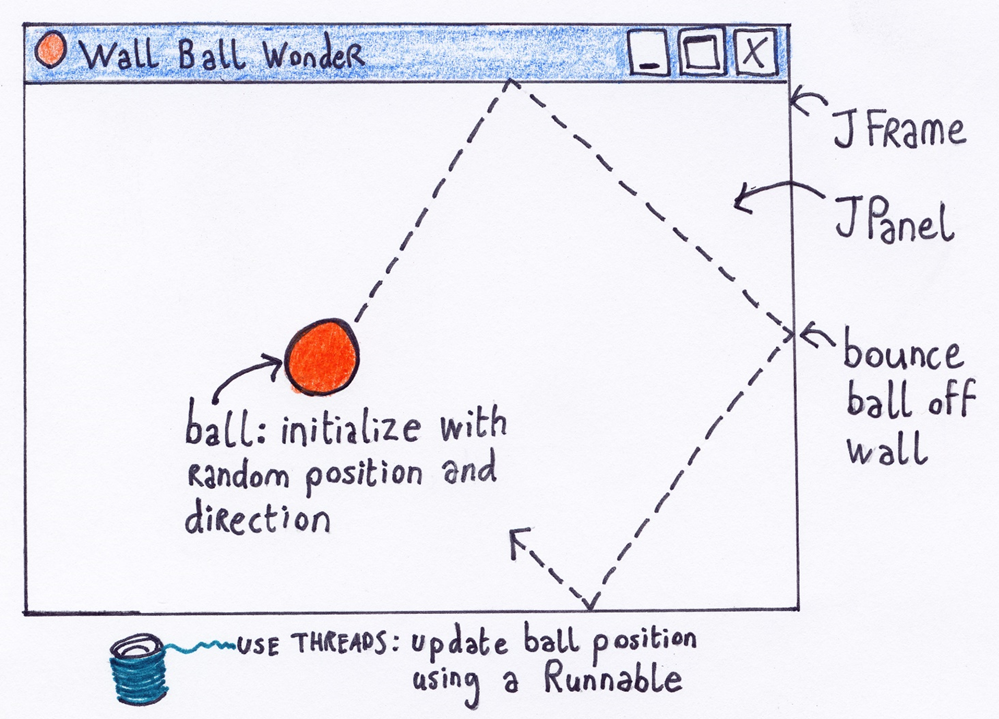 Wall Ball Wonder
JFrame
JPanel
bounce
ball off
wall
ball: initialize with
random position and
direction
USE THREADS: update ball position
using a Runnable